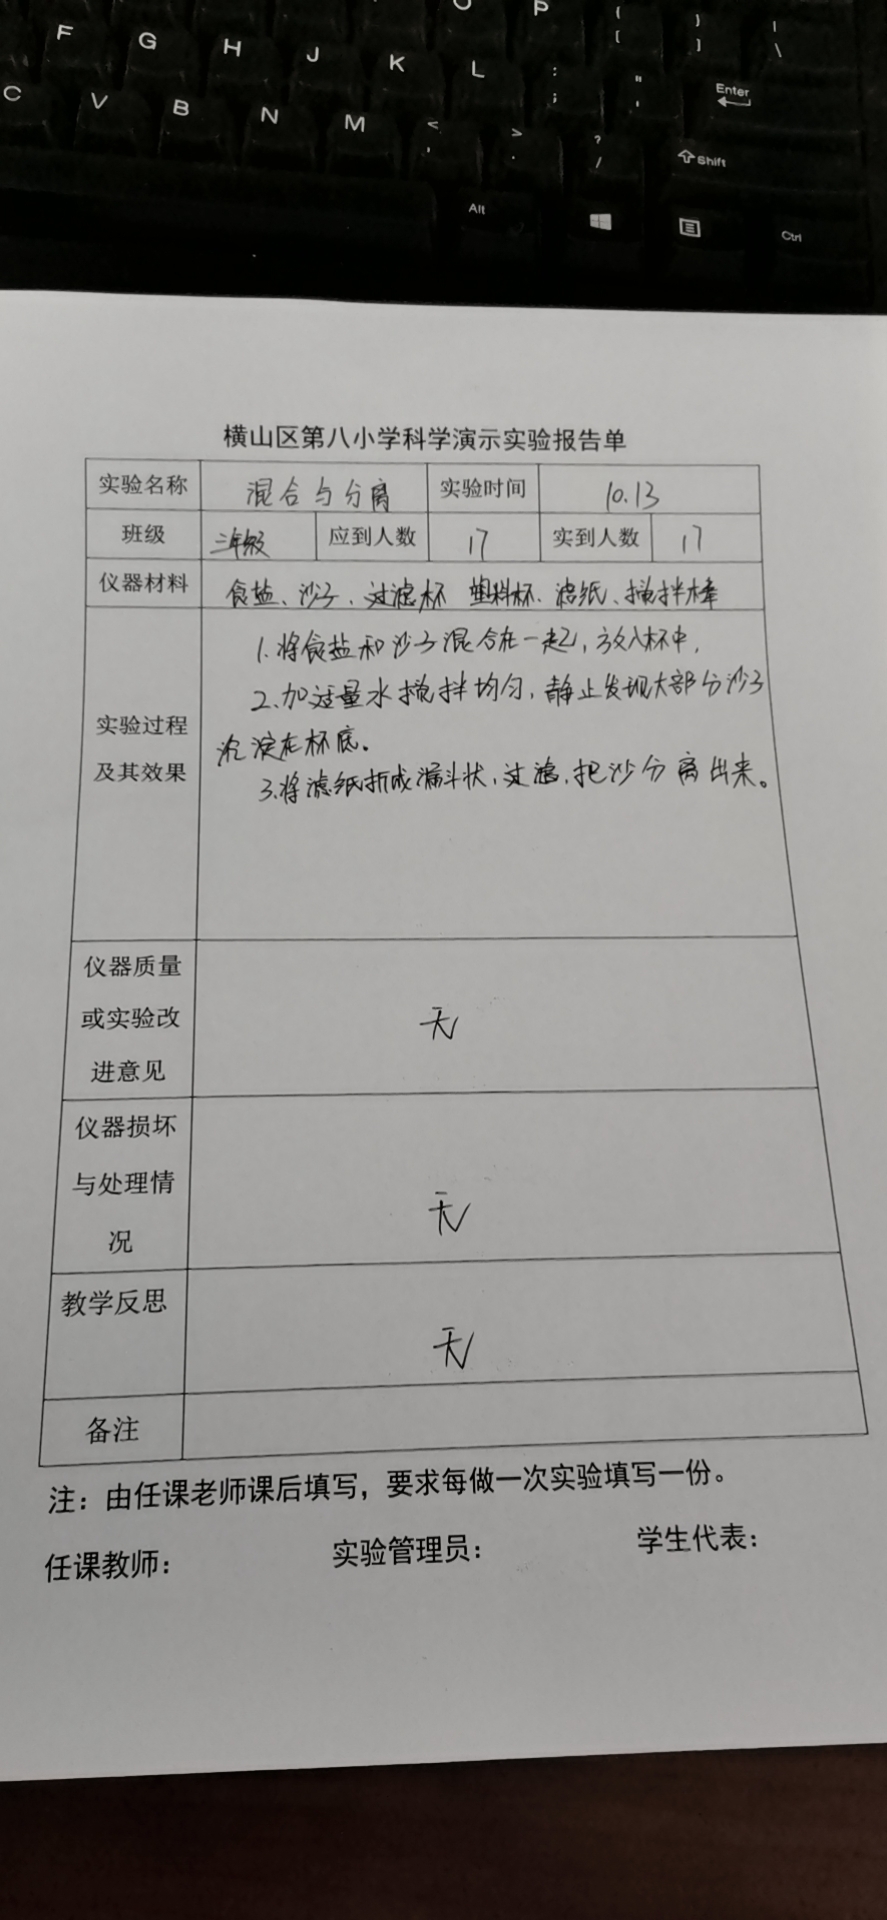 O P { [ } ] | \
F G H J K L : ; " ' Enter
C V B N M < , > . ? / Shift
Alt Ctrl
横山区第八小学科学演示实验报告单
实验名称 混合与分离 实验时间 10.13
班级 三年级 应到人数 17 实到人数 17
仪器材料 食盐、沙子、过滤杯 塑料杯、滤纸、搅拌棒
实验过程
及其效果
1.将食盐和沙子混合在一起,放入杯中,
2.加适量水搅拌均匀,静止发现大部分沙子
沉淀在杯底。
3.将滤纸折成漏斗状,过滤,把沙分离出来。
仪器质量
或实验改
进意见
无
仪器损坏
与处理情
况
无
教学反思
无
备注
注：由任课老师课后填写，要求每做一次实验填写一份。
任课教师： 实验管理员： 学生代表：